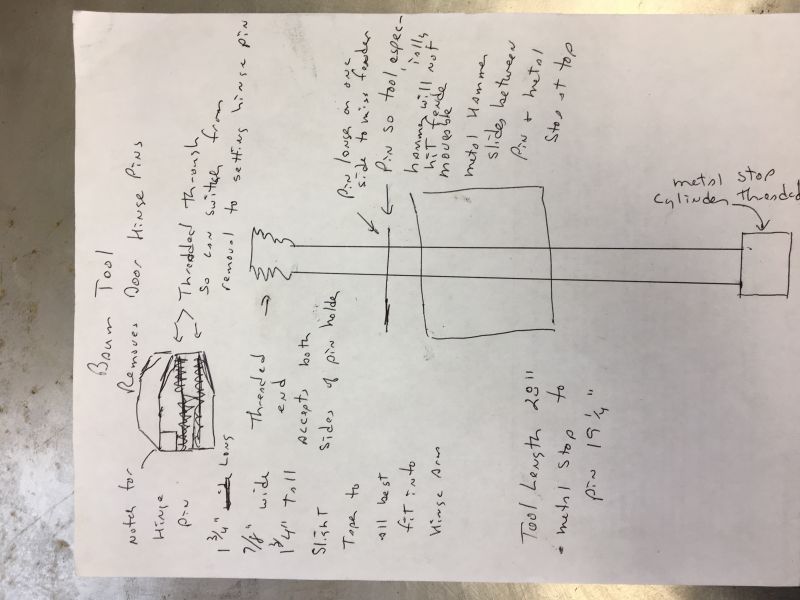 Baum Tool
Removes Door Hinge Pins
Notch for
Hinge
Pin
Threaded through
so can switch from
removal to setting hinge pin
1 3/4" Long
7/8" wide
1 3/4" Tall
Slight
Taper to
all best
fit into
Hinge Arm
Threaded
end
Accepts both
sides of pin holder
Pin longer on one
side to miss fender
Pin so tool espec-
ially
hammer will not
hit fender
moveable
metal Hammer
slides between
Pin + metal
Stop at top
metal stop
cylinder threaded
Tool Length 20"
• metal stop to
pin 19 1/4"